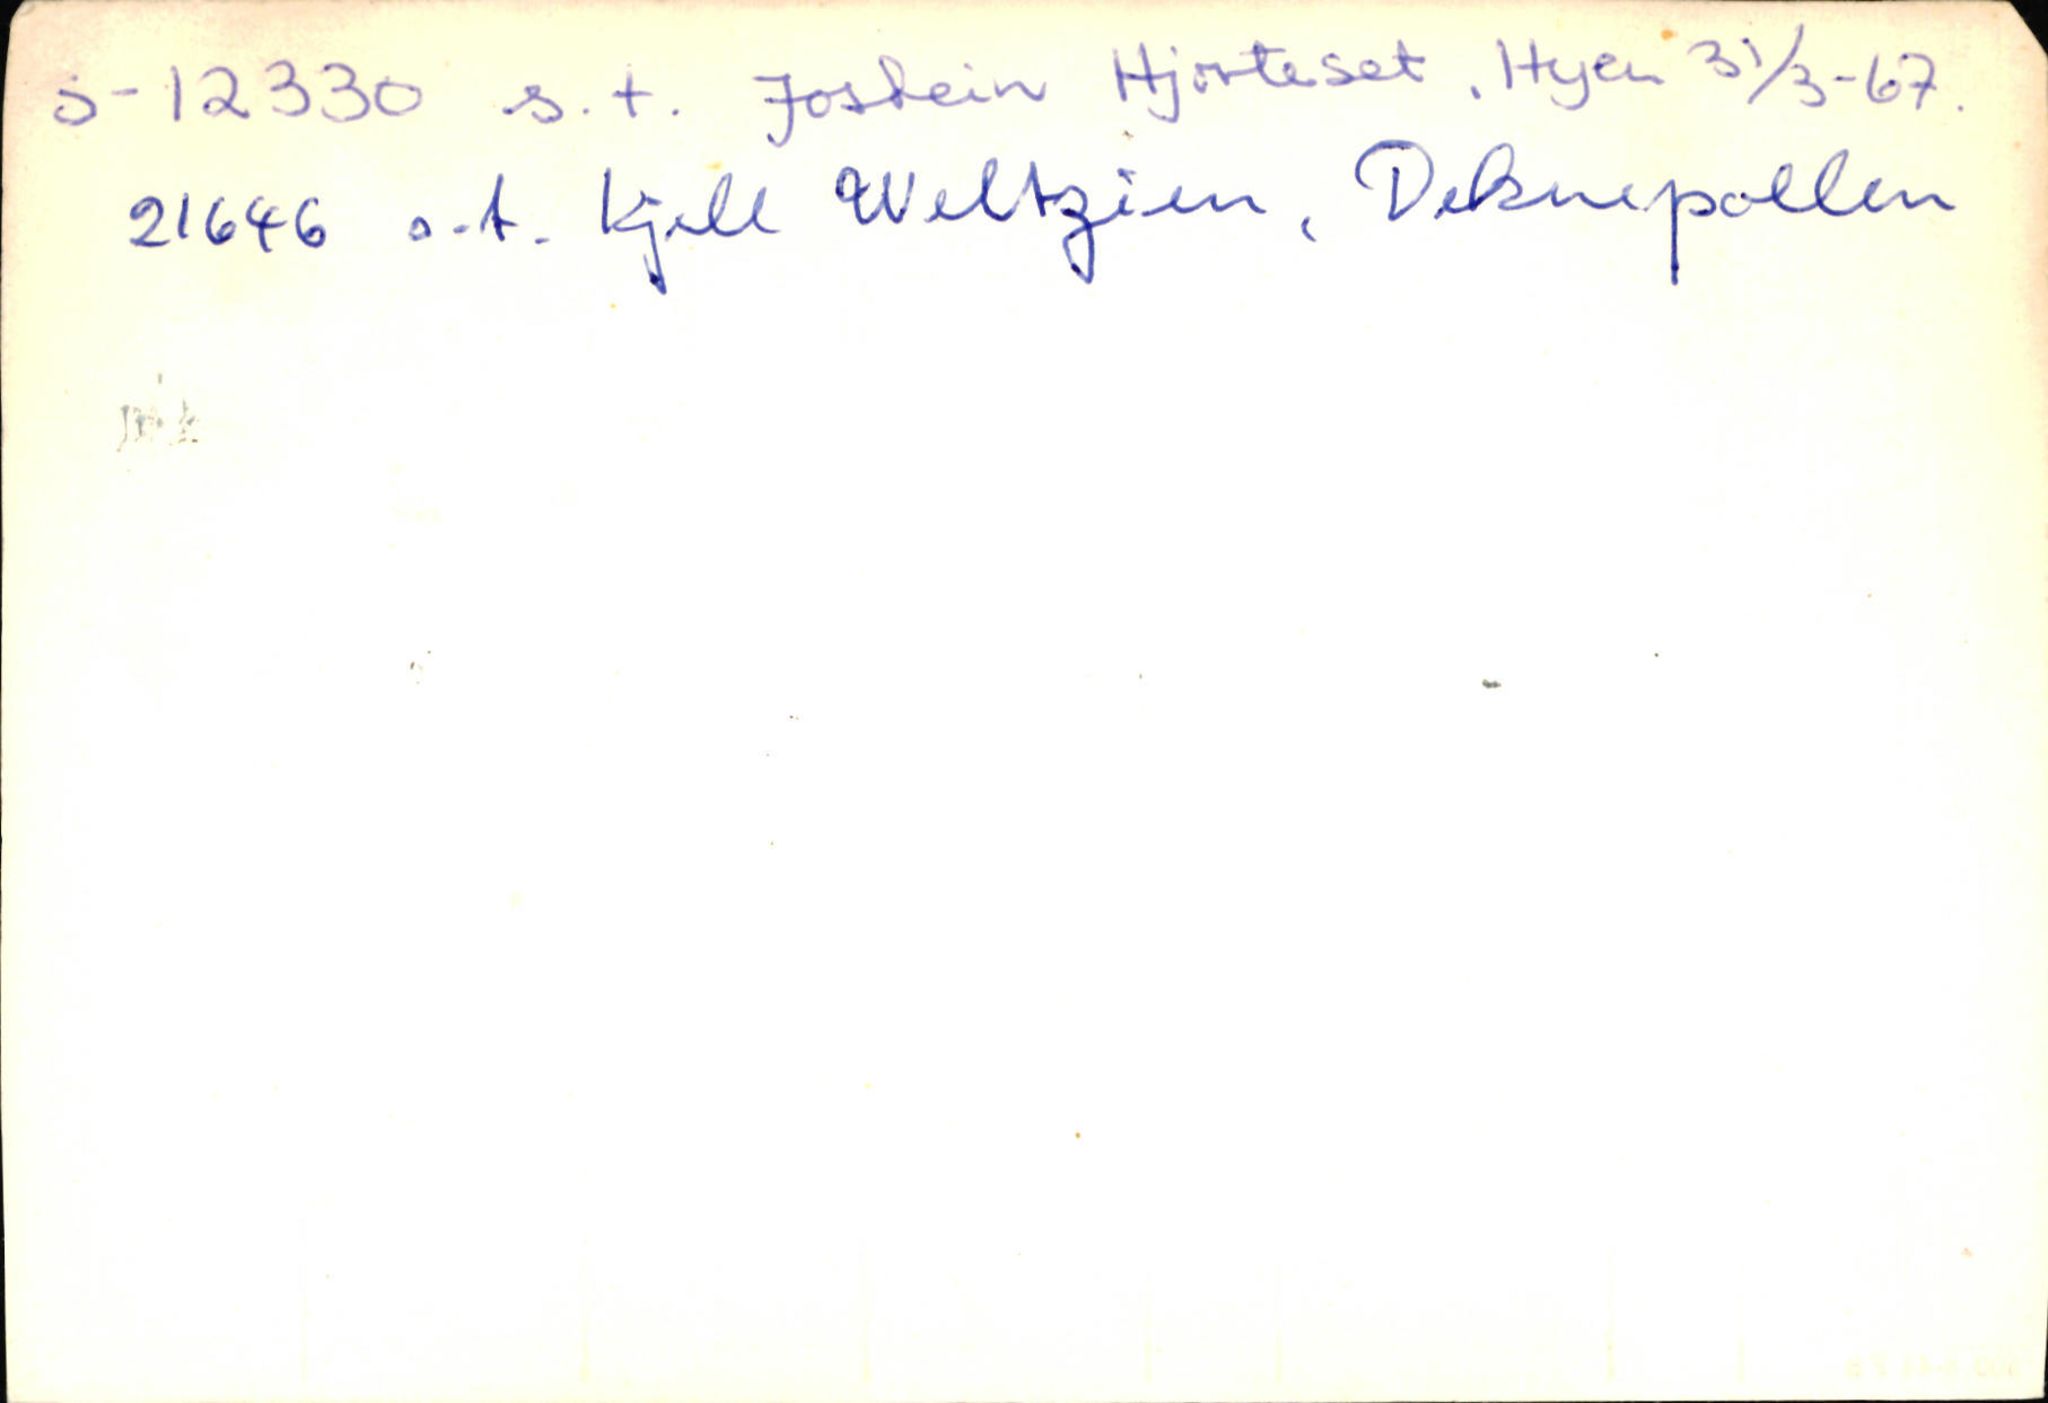 S-12330 s.t. Jostein Hjorteset, Hyen 31/3-67.
21646 s.t. Kjell Weltzien, Deknepollen